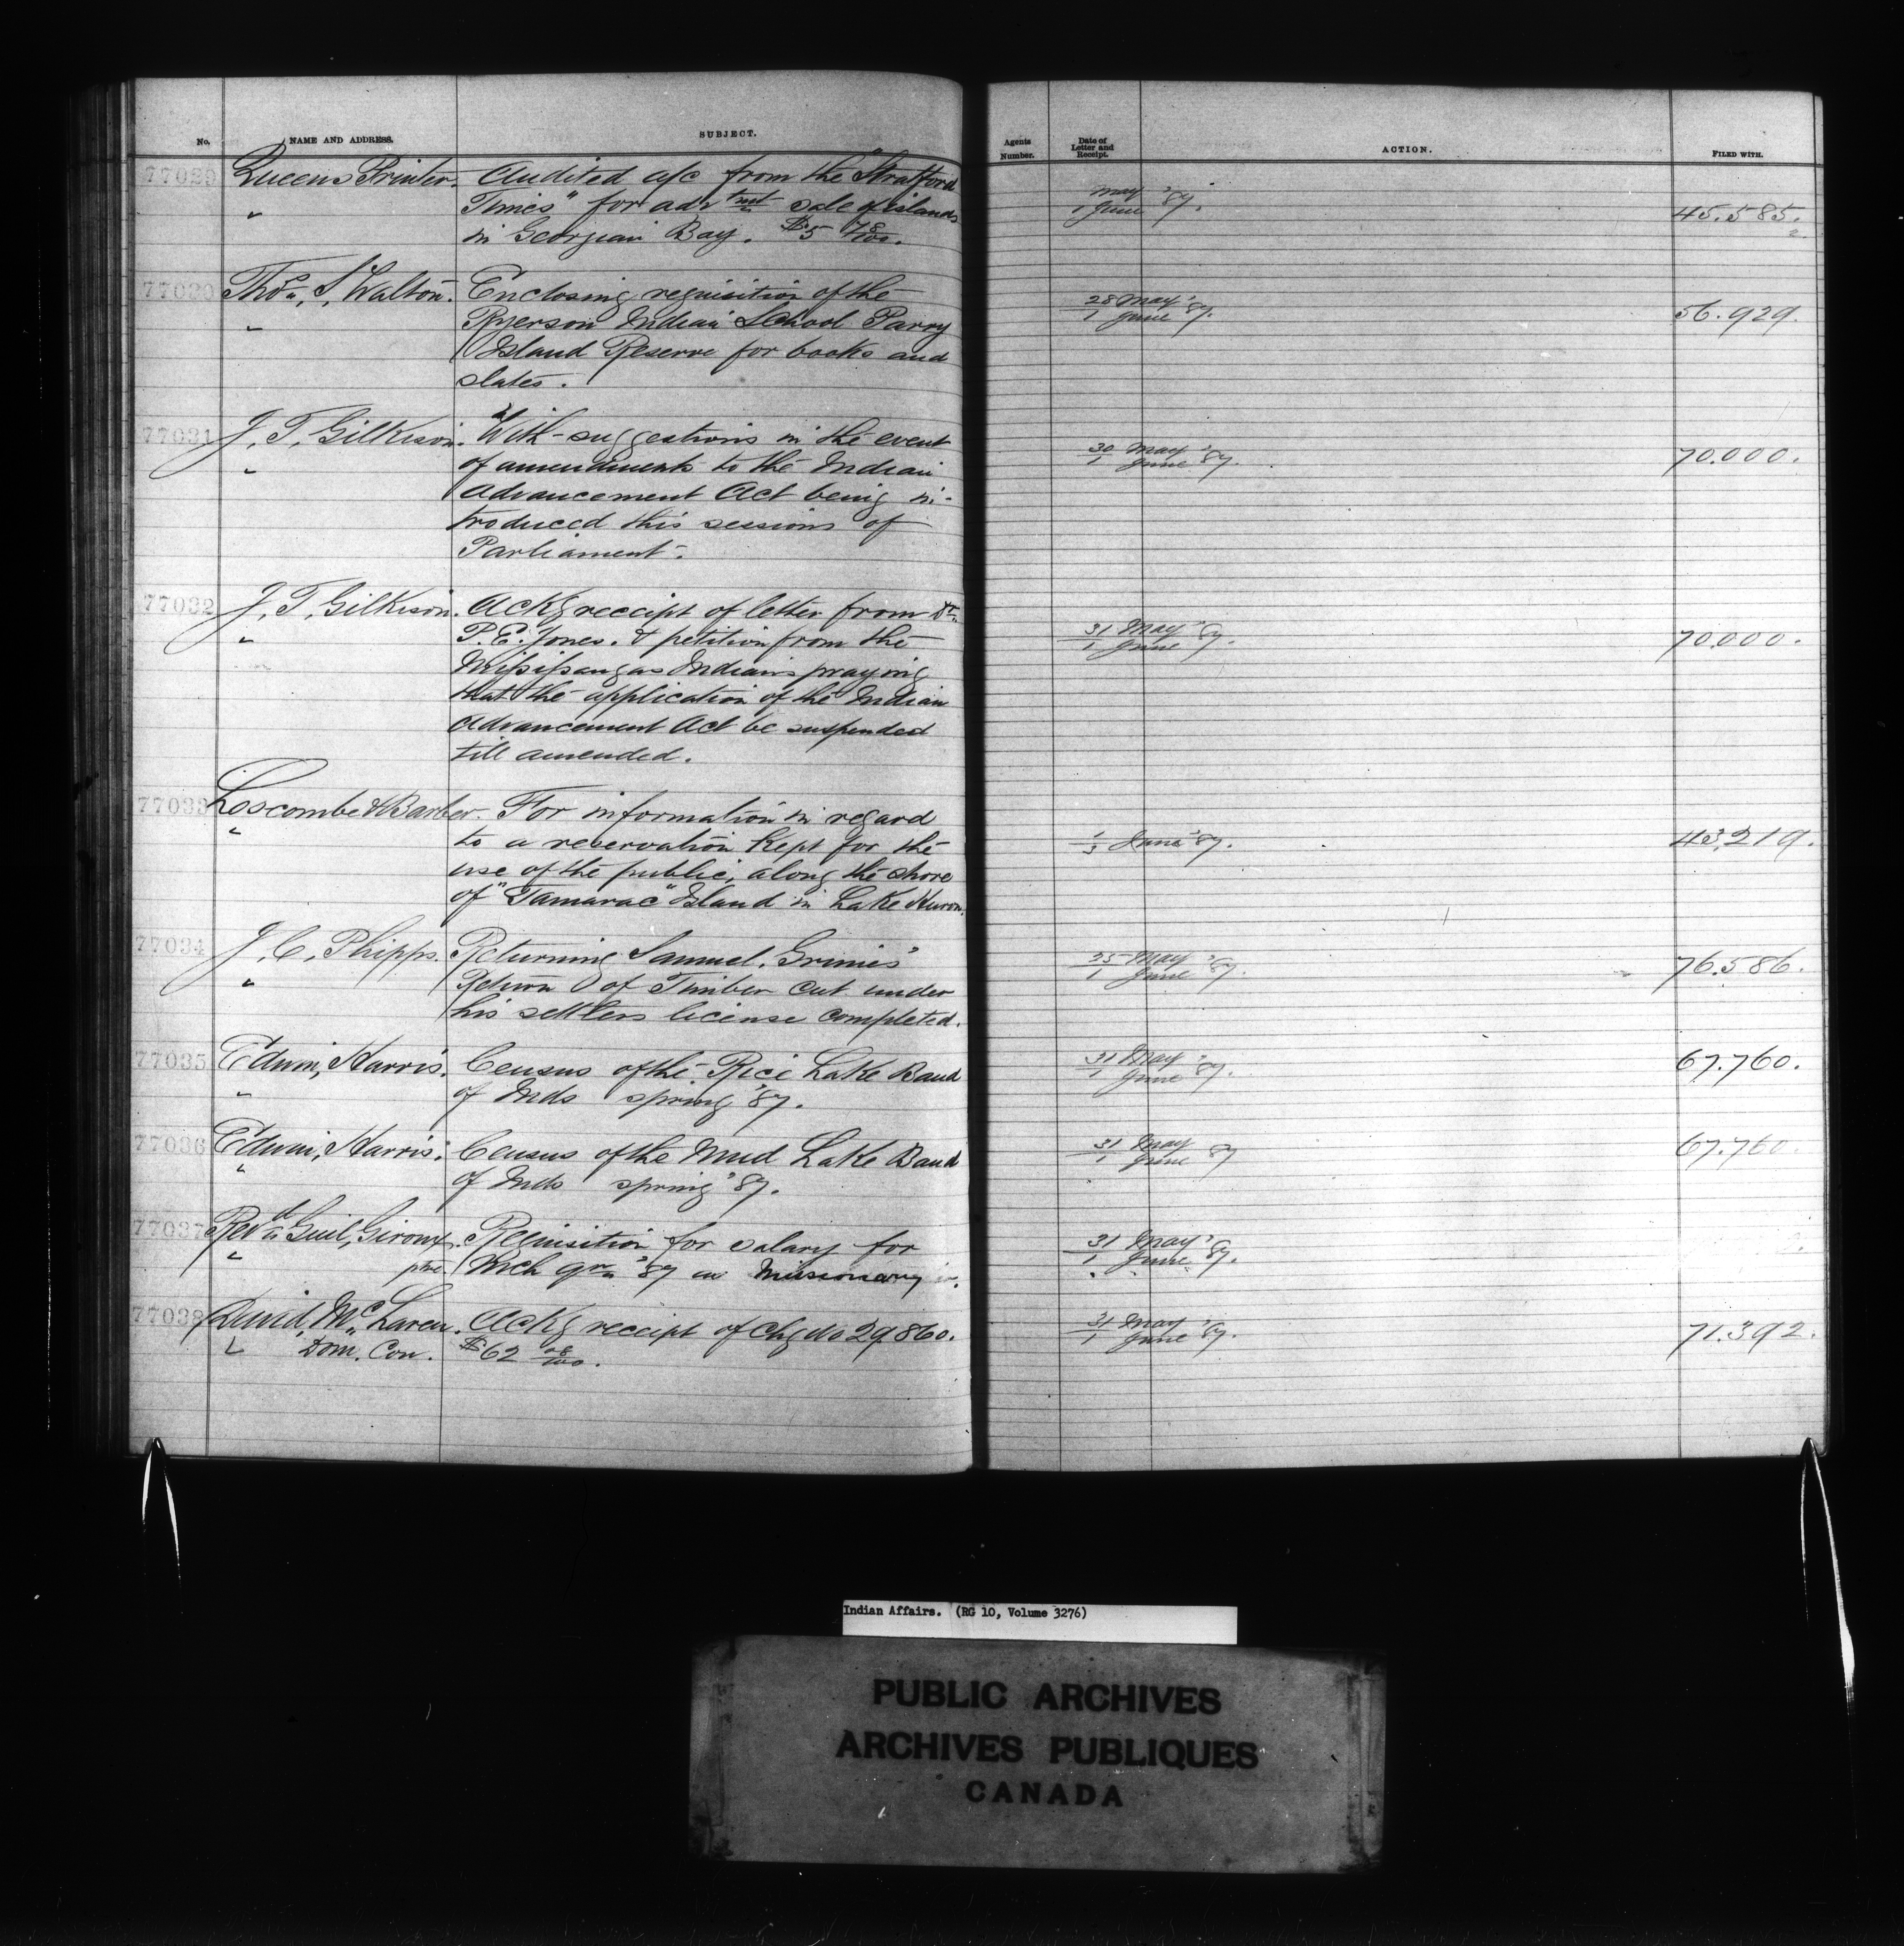 No. NAME AND ADDRESS. SUBJECT. Agents Number. Date of Letter and Receipt. ACTION. FILED WITH.
77029 Queens Printer. Audited a/c from the "Stratford May 1 June '87. 45.585.2
" Times" for advtmt sale of islands
in Georgian Bay. $5 78/100.
77030 Thos. S. Walton. Enclosing requisition of the 28 May 1 June '87. 56.929.
" Ryerson Indian School Parry
Island Reserve for books and
slates.
77031 J. T. Gilkison. With suggestions in the event 30 May 1 June '87. 70.000.
" of amendments to the Indian
Advancement Act being in-
troduced this session of
Parliament.
77032 J. T. Gilkison. Ackg receipt of letter from Dr. 31 May 1 June '87. 70.000.
" P. E. Jones. & petition from the
Missisaugas Indians praying
that the application of the Indian
Advancement Act be suspended
till amended.
77033 Loscombe & Barber. For information in regard
" to a reservation kept for the 1/3 June '87. 43.219.
use of the public, along the shore
of "Tamarac" Island in Lake Huron.
77034 J. C. Phipps. Returning Samuel Grimes' 25 May 1 June '87. 76.586.
" Return of Timber cut under
his settlers license completed.
77035 Edwin Harris. Census of the Rice Lake Band 31 May 1 June '87. 67.760.
" of Inds spring '87.
77036 Edwin Harris. Census of the Mud Lake Band 31 May 1 June '87 67.760.
" of Inds spring '87.
77037 Revd. Guil. Giroux, Requisition for salary for 31 May 1 June '87.
" ptre. Mch qr. '87 as Missionary
77038 David McLaren. Ackg receipt of Chq No 29860. 31 May 1 June '87. 71.392.
" Dom. Con. $62
Indian Affairs. (RG 10, Volume 3276)
PUBLIC ARCHIVES
ARCHIVES PUBLIQUES
CANADA